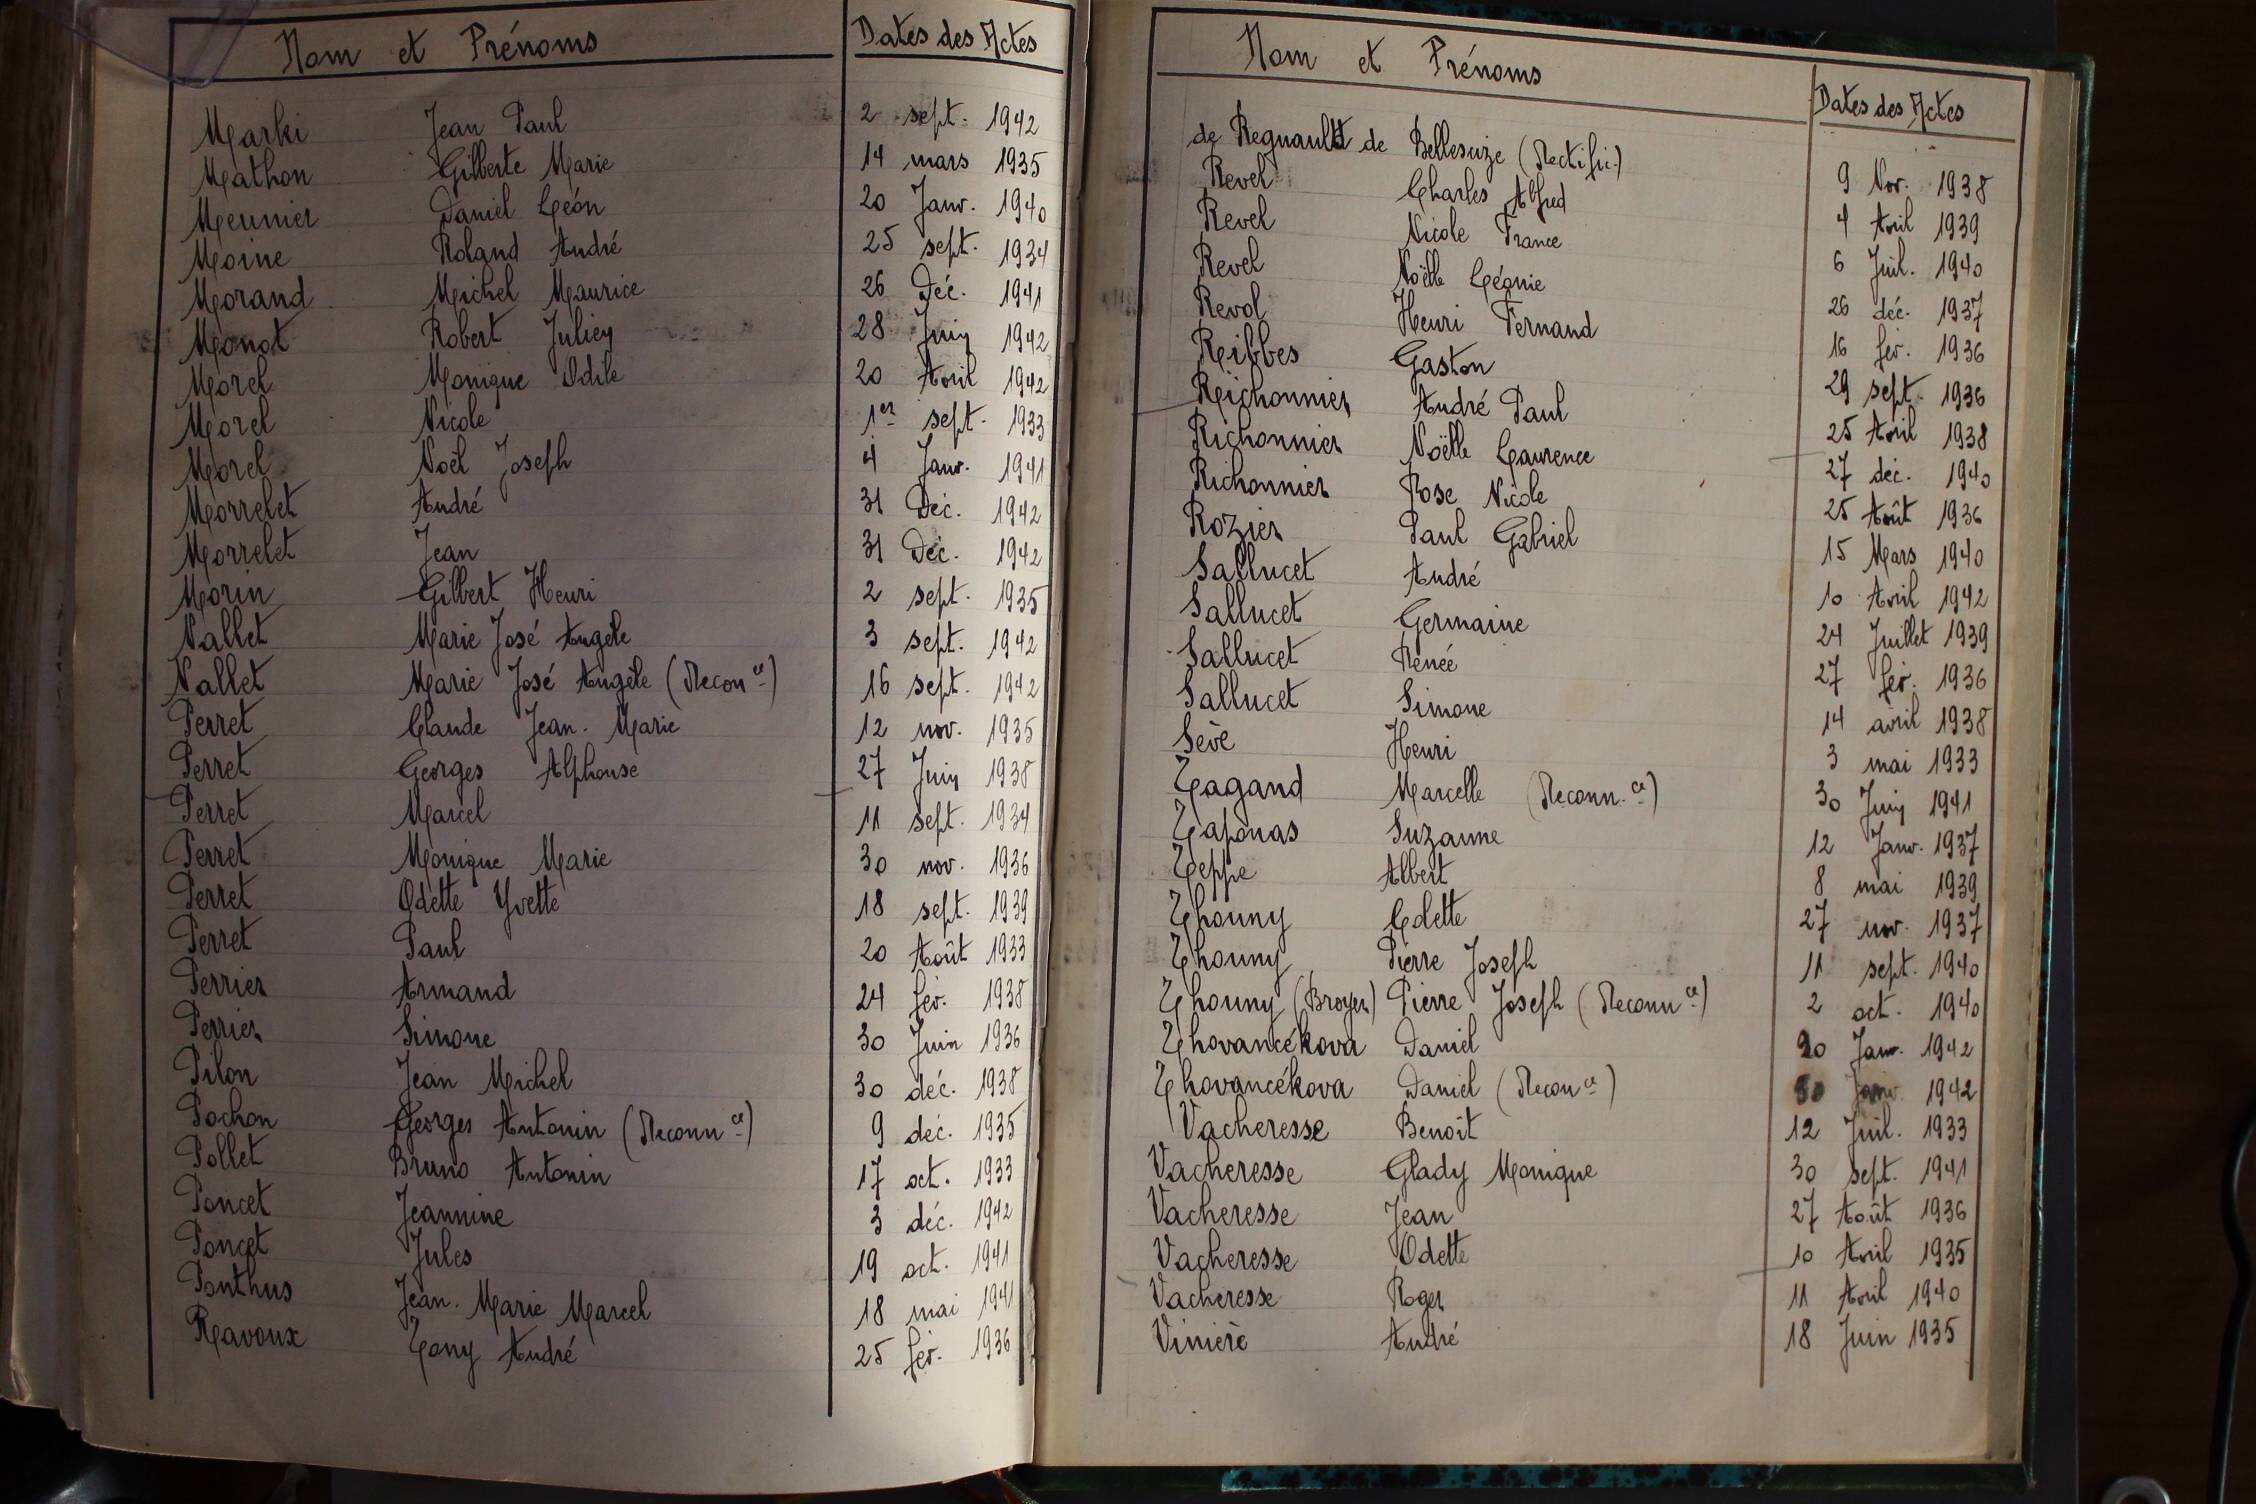 Nom et Prénoms Dates des Actes
Marki Jean Paul 2 sept. 1942
Mathon Gilberte Marie 14 mars 1935
Meunier Daniel Léon 20 Janv. 1940
Moine Roland André 25 sept. 1934
Morand Michel Maurice 26 Déc. 1941
Monot Robert Julien 28 Juin 1942
Morel Monique Odile 20 Avril 1942
Morel Nicole 1er sept. 1933
Morel Noël Joseph 4 Janv. 1941
Morrelet André 31 Déc. 1942
Morrelet Jean 31 Déc. 1942
Morin Gilbert Henri 2 sept. 1935
Nallet Marie José Angèle 3 sept. 1942
Nallet Marie José Angèle (Recon ce) 16 sept. 1942
Perret Claude Jean-Marie 12 nov. 1935
Perret Georges Alphonse 27 Juin 1938
Perret Marcel 11 sept. 1934
Perret Monique Marie 30 nov. 1936
Perret Odette Yvette 18 sept. 1939
Perret Paul 20 Août 1933
Perrier Armand 24 fév. 1938
Perrier Simone 30 Juin 1936
Pilon Jean Michel 30 déc. 1938
Pochon Georges Antonin (Reconn ce) 9 déc. 1935
Pollet Bruno Antonin 17 oct. 1933
Poncet Jeannine 3 déc. 1942
Poncet Jules 19 oct. 1941
Ponthus Jean-Marie Marcel 18 mai 1941
Ravoux Tony André 25 fév. 1936
Nom et Prénoms Dates des Actes
de Regnauld de Bellescize (Rectific.) 9 Nov. 1938
Revel Charles Alfred 4 Avril 1939
Revel Nicole France 6 Juil. 1940
Revel Noëlle Léonie 26 déc. 1937
Revol Henri Fernand 16 fév. 1936
Ribbes Gaston 29 sept. 1936
Richonnier André Paul 25 Avril 1938
Richonnier Noëlle Laurence 27 déc. 1940
Richonnier Rose Nicole 25 Août 1936
Rozier Paul Gabriel 15 Mars 1940
Sallucet André 10 Avril 1942
Sallucet Germaine 24 Juillet 1939
Sallucet Renée 27 fév. 1936
Sallucet Simone 14 avril 1938
Sève Henri 3 mai 1933
Tagand Marcelle (Reconn. ce) 30 Juin 1941
Taponas Suzanne 12 Janv. 1937
Teppe Albert 8 mai 1939
Thouny Colette 27 nov. 1937
Thouny Pierre Joseph 11 sept. 1940
Thouny (Broyer) Pierre Joseph (Reconn ce) 2 oct. 1940
Thovancékova Daniel 20 Janv. 1942
Thovancékova Daniel (Recon ce) Janv. 1942
Vacheresse Benoît 12 Juil. 1933
Vacheresse Glady Monique 30 sept. 1941
Vacheresse Jean 27 Août 1936
Vacheresse Odette 10 Avril 1935
Vacheresse Roger 11 Avril 1940
Vinière André 18 Juin 1935